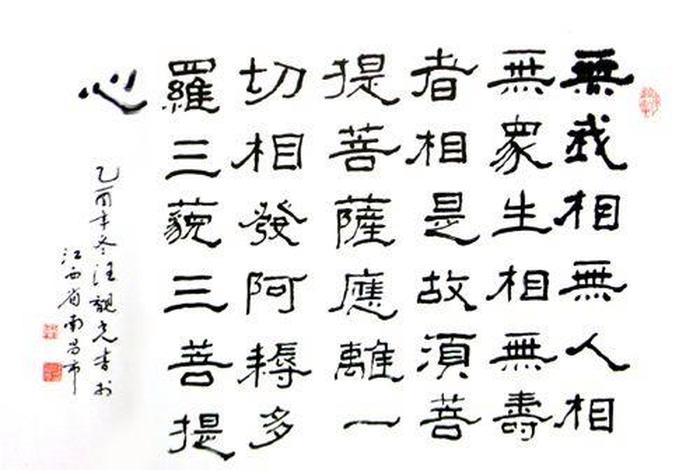 無我相無人相
無眾生相無壽
者相是故須菩
提菩薩應離一
切相發阿耨多
羅三藐三菩提
心
乙酉年冬汪觀先書於
江西省南昌市